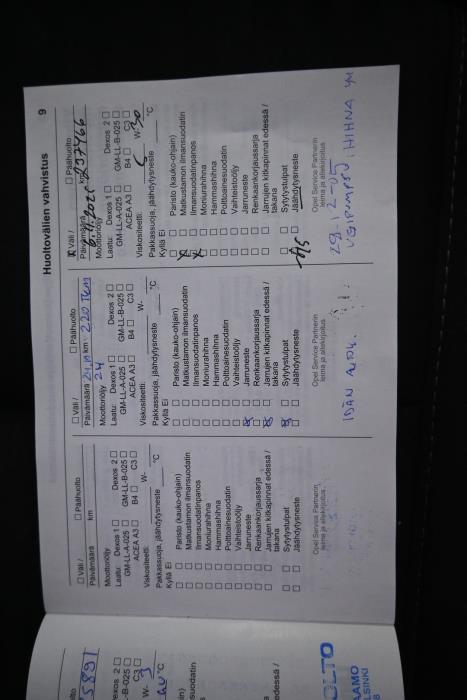 Huoltovälien vahvistus
9
☐ Väli / ☐ Päähuolto
Päivämäärä km
Moottoriöljy
Laatu: Dexos 1 ☐ Dexos 2 ☐
GM-LL-A-025 ☐ GM-LL-B-025 ☐
ACEA A3 ☐ B4 ☐ C3 ☐
Viskositeetti: W-
Pakkassuoja, jäähdytysneste °C
Kyllä Ei
☐ ☐ Paristo (kauko-ohjain)
☐ ☐ Matkustamon ilmansuodatin
☐ ☐ Ilmansuodatinpanos
☐ ☐ Moniurahihna
☐ ☐ Hammashihna
☐ ☐ Polttoainesuodatin
☐ ☐ Vaihteistoöljy
☐ ☐ Jarruneste
☐ ☐ Renkaankorjaussarja
☐ ☐ Jarrujen kitkapinnat edessä /
takana
☐ ☐ Sytytystulpat
☐ ☐ Jäähdytysneste
Opel Service Partnerin
leima ja allekirjoitus
☐ Väli / ☐ Päähuolto
Päivämäärä km 220 TKM
Moottoriöljy
Laatu: Dexos 1 ☐ Dexos 2 ☐
GM-LL-A-025 ☐ GM-LL-B-025 ☐
ACEA A3 ☐ B4 ☐ C3 ☐
Viskositeetti: W-
Pakkassuoja, jäähdytysneste °C
Kyllä Ei
☐ ☐ Paristo (kauko-ohjain)
☐ ☐ Matkustamon ilmansuodatin
☐ ☐ Ilmansuodatinpanos
☐ ☐ Moniurahihna
☐ ☐ Hammashihna
☐ ☐ Polttoainesuodatin
☐ ☐ Vaihteistoöljy
☒ ☐ Jarruneste
☐ ☐ Renkaankorjaussarja
☒ ☐ Jarrujen kitkapinnat edessä /
takana
☒ ☐ Sytytystulpat
☐ ☐ Jäähdytysneste
Opel Service Partnerin
leima ja allekirjoitus
IDÄN
☒ Väli / ☐ Päähuolto
Päivämäärä km 237466
Moottoriöljy
Laatu: Dexos 1 ☐ Dexos 2 ☐
GM-LL-A-025 ☐ GM-LL-B-025 ☐
ACEA A3 ☐ B4 ☐ C3 ☐
Viskositeetti: W-30
Pakkassuoja, jäähdytysneste °C
Kyllä Ei
☐ ☐ Paristo (kauko-ohjain)
☒ ☐ Matkustamon ilmansuodatin
☒ ☐ Ilmansuodatinpanos
☐ ☐ Moniurahihna
☐ ☐ Hammashihna
☐ ☐ Polttoainesuodatin
☐ ☐ Vaihteistoöljy
☐ ☐ Jarruneste
☐ ☐ Renkaankorjaussarja
☐ ☐ Jarrujen kitkapinnat edessä /
takana
☐ ☐ Sytytystulpat
☐ ☐ Jäähdytysneste
Opel Service Partnerin
leima ja allekirjoitus
VESIPUMPPU, HIHNA